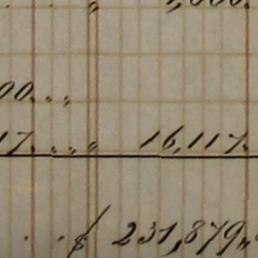 00. „ „
17. „ „ 16,117.
$ 231,879 „